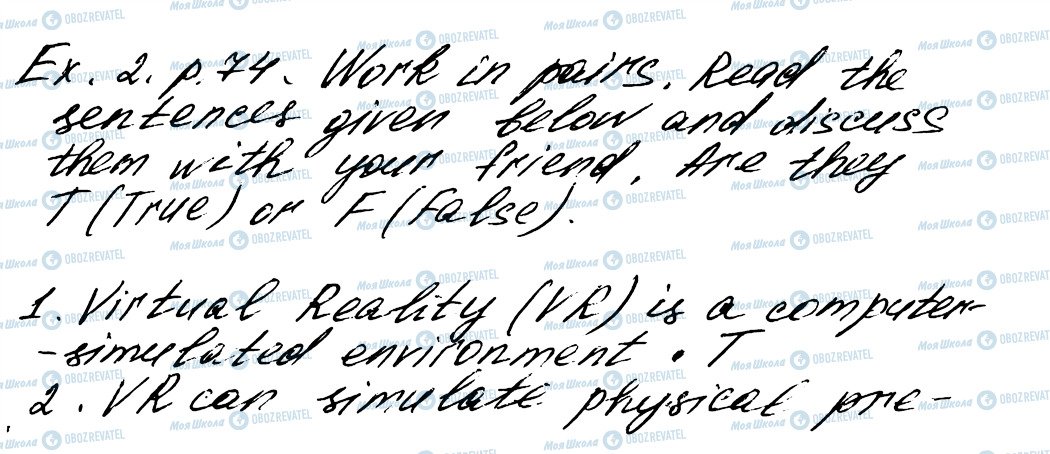 Ex. 2. p. 74. Work in pairs. Read the
sentences given below and discuss
them with your friend. Are they
T (True) or F (False).
1. Virtual Reality (VR) is a computer-
-simulated environment. T
2. VR can simulate physical pre-